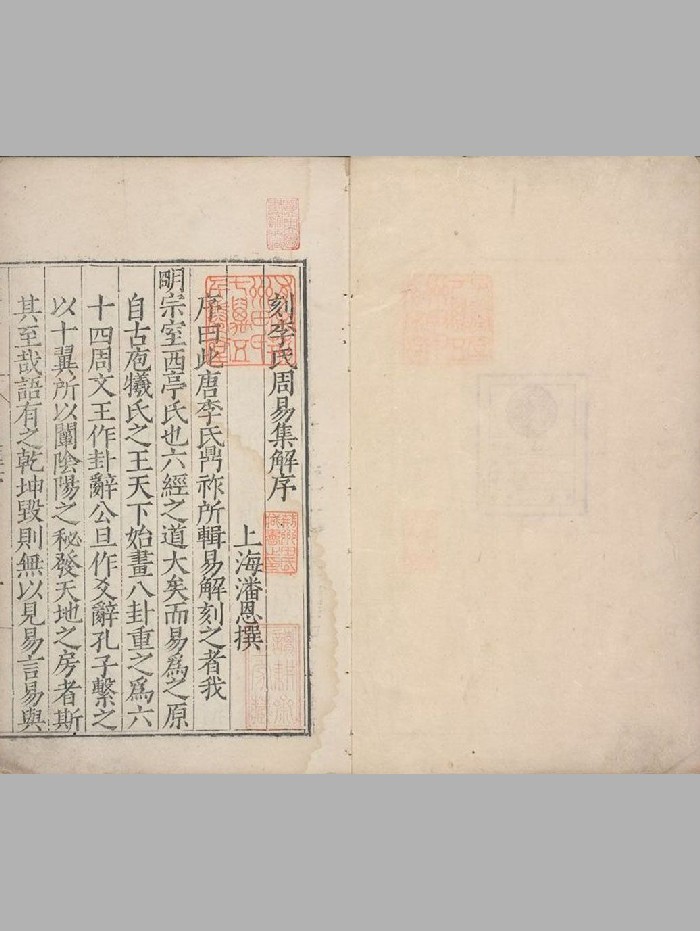 刻李氏周易集解序
上海潘恩撰
序曰此唐李氏鼎祚所輯易解刻之者我
明宗室西亭氏也六經之道大矣而易爲之原
自古庖犧氏之王天下始畫八卦重之爲六
十四周文王作卦辭公旦作爻辭孔子繫之
以十翼所以闡陰陽之秘發天地之房者斯
其至哉語有之乾坤毀則無以見易言易與